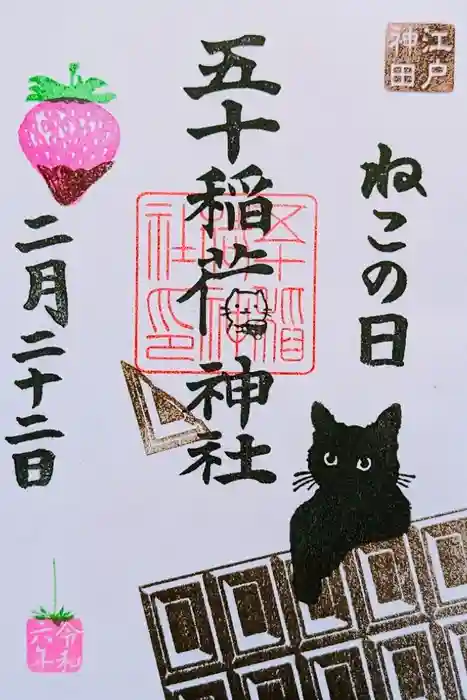 江戸
神田
ねこの日
五十稲荷神社
五十稲荷神社印
二月二十二日
令和
六年